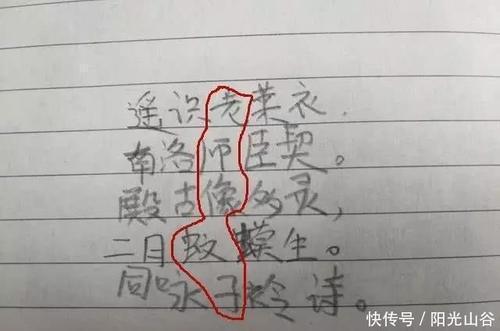 遥识老莱衣.
南洛师臣契。
殿古像多灵,
二月蚁蠓生。
同咏子怜诗。
快传号/阳光山谷